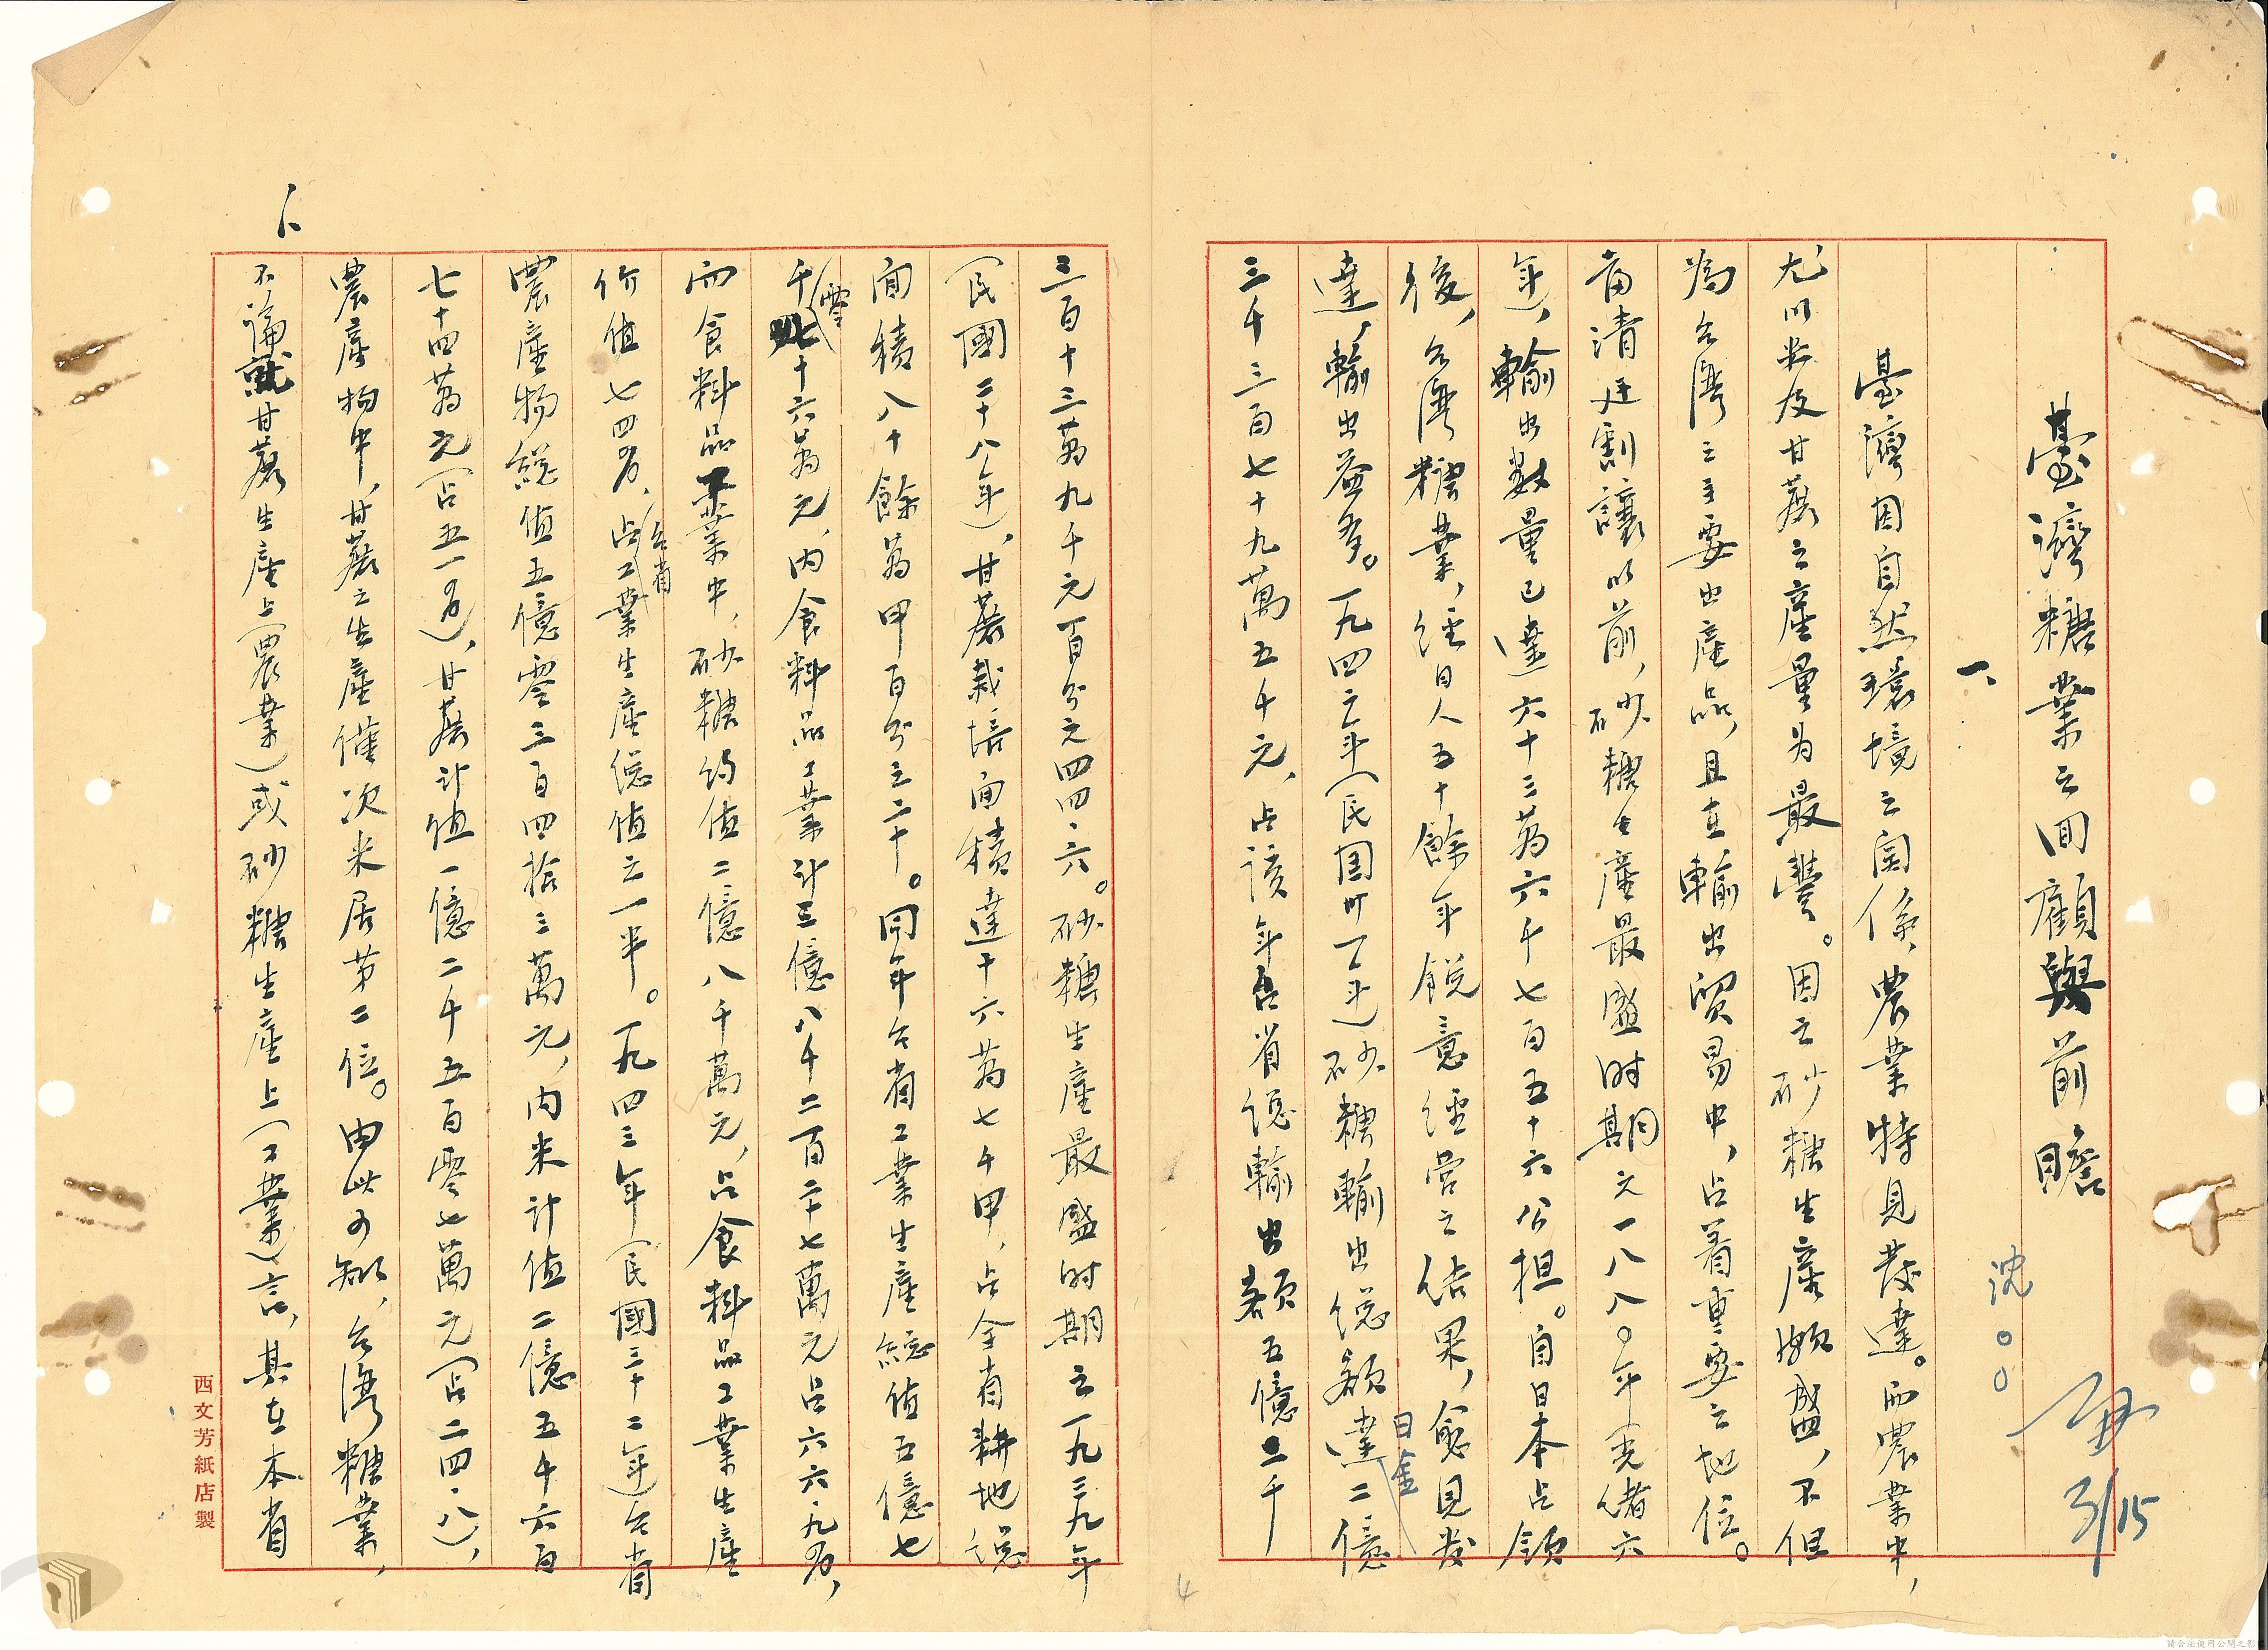 臺灣糖業之回顧與前瞻
沈○○
3/15
一、
臺灣因自然環境之関係，農業特見發達。而農業中，
尤以米及甘蔗之產量为最豐。因之砂糖生產頗盛，不但
為台灣之主要出產品，且在輸出貿易中，占着重要之地位。
當清廷割讓以前，砂糖生產最盛时期之一八八〇年（光緒六
年），輸出数量已達六十三萬六千七百五十六公担。自日本占領
後，台灣糖業，经日人五十餘年銳意经营之结果，愈見发
達，輸出益多。一九四二年（民国卅一年）砂糖輸出總額達日金二億
三千三百七十九萬五千元，占該年台省總輸出額五億二千
三百十三萬九千元百分之四四·六。砂糖生產最盛时期之一九三九年
（民國二十八年），甘蔗栽培面積達十六萬七千甲，占全省耕地總
面積八十餘萬甲百分之二十。同年台省工業生產總值五億七
千零十六萬元，内食料品工業計三億八千二百二十七萬元占六六·九％，
而食料品工業中，砂糖约值二億八千萬元，占食料品工業生產
价值七四％，占台省工業生產總值之一半。一九四三年（民國三十二年）台省
農產物總值五億零三百四拾三萬元，内米計值二億五千六百
七十四萬元（占五一％），甘蔗计值一億二千五百零七萬元（占二四·八），
農產物中，甘蔗之生產僅次米居第二位。由此可知，台灣糖業，
不論就甘蔗生產上（農業）或砂糖生產上（工業）言，其在本省
西文芳紙店製
4
請合法使用公開之影